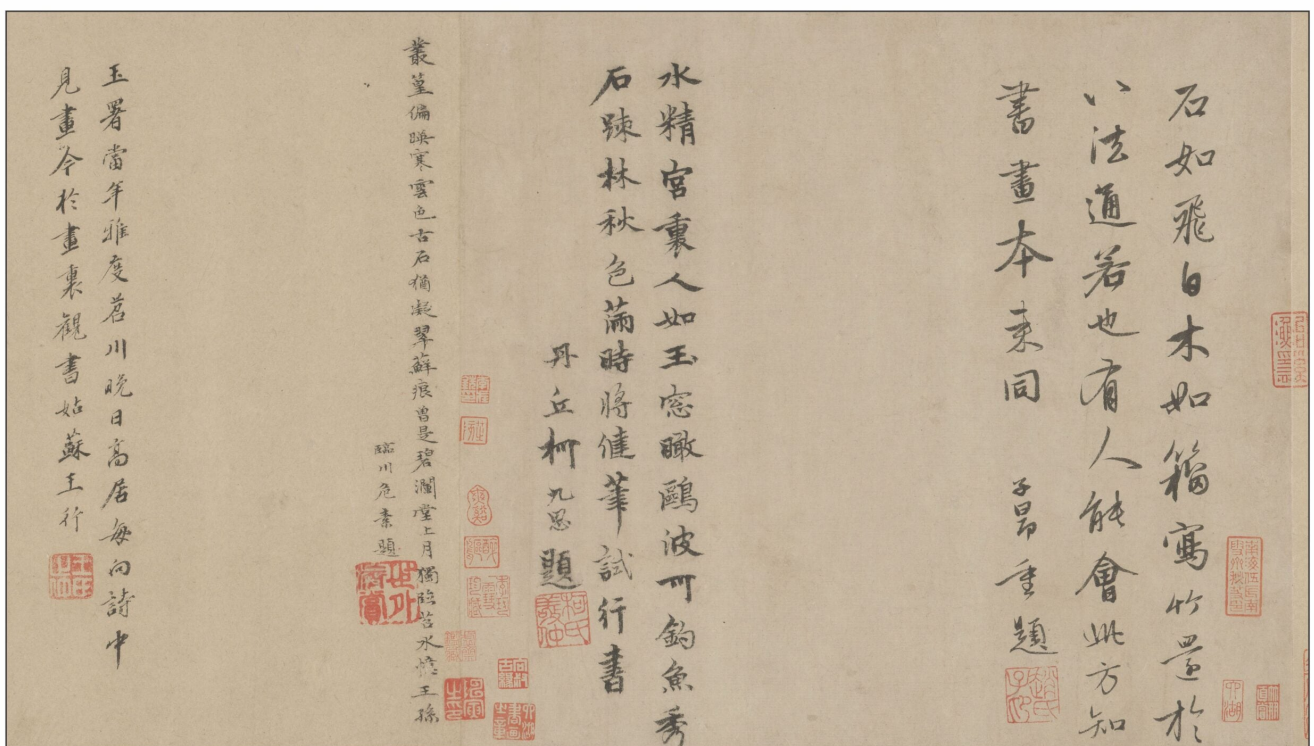 石如飛白木如籀寫竹還於
八法通若也有人能會此方知
書畫本來同 子昂重題
水精宮裏人如玉窓瞰鷗波可釣魚秀
石踈林秋色滿時將健筆試行書
丹丘柯九思題
叢篁偏暎寒雲色古石猶凝翠蘚痕曾是碧瀾堂上月獨臨苕水憶王孫
臨川危素題
玉署當年雅度苕川晚日高居每向詩中
見畫今於畫裏觀書姑蘇王行
趙氏子昂
柯氏敬仲